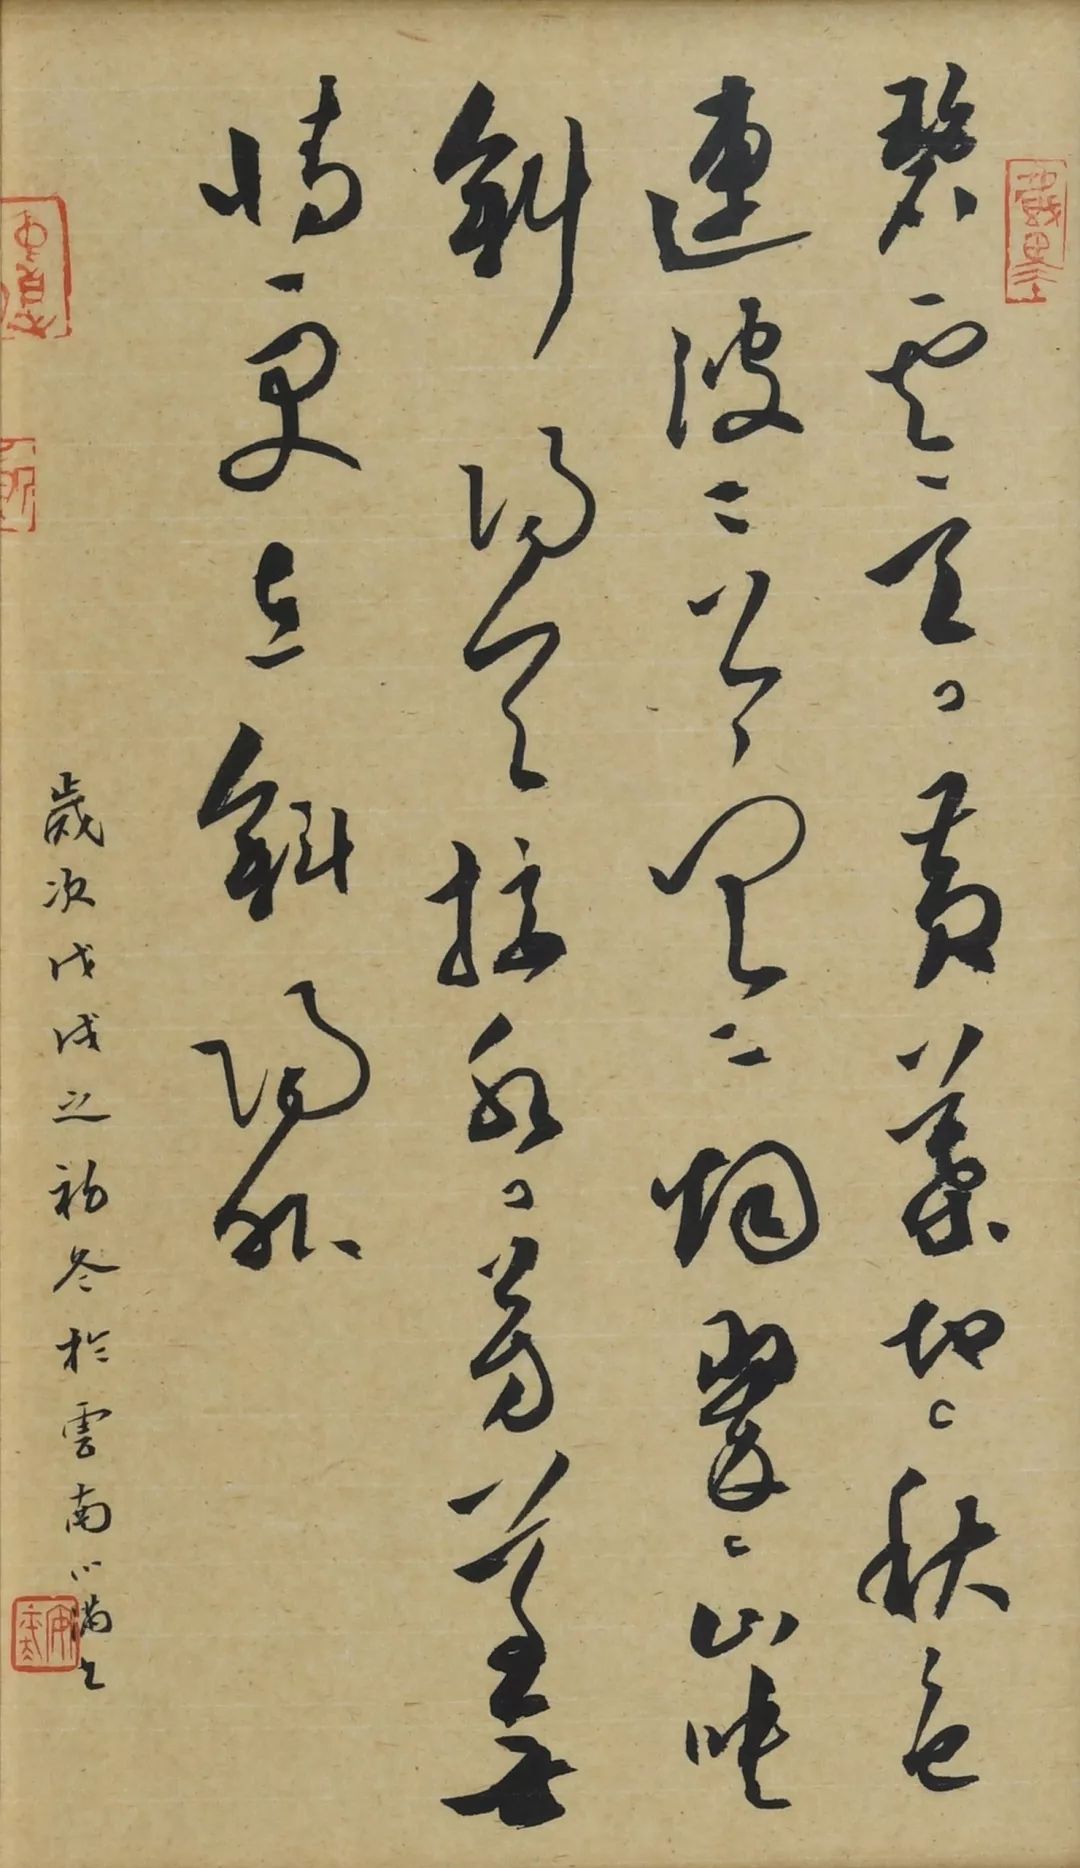 碧雲天黄葉地秋色
連波〻上寒烟翠山映
斜陽天接水芳草無
情更在斜陽外
歲次戊戌之初冬於雲南